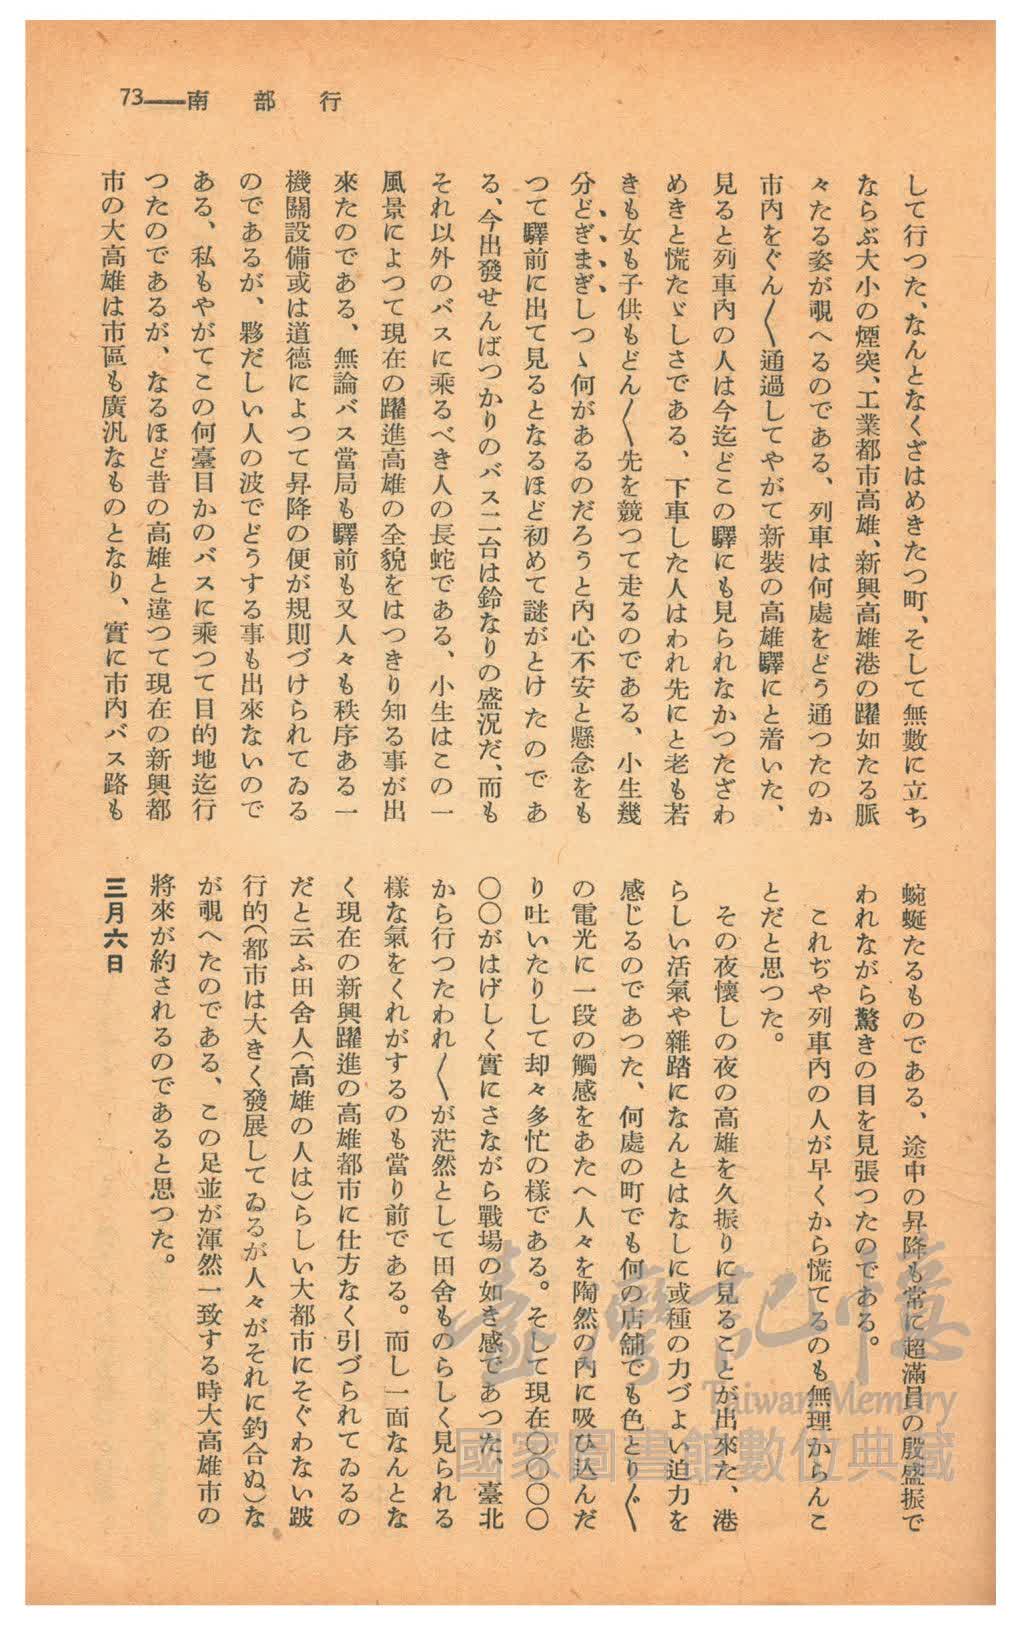 73——南部行
して行つた、なんとなくざはめきたつ町、そして無數に立ち
ならぶ大小の煙突、工業都市高雄、新興高雄港の躍如たる脈
々たる姿が覗へるのである、列車は何處をどう通つたのか
市內をぐん〳〵通過してやがて新裝の高雄驛にと着いた、
見ると列車內の人は今迄どこの驛にも見られなかつたざわ
めきと慌たゞしさである、下車した人はわれ先にと老も若
きも女も子供もどん〳〵先を競つて走るのである、小生幾
分どぎまぎしつゝ何があるのだろうと內心不安と懸念をも
つて驛前に出て見るとなるほど初めて謎がとけたのであ
る、今出發せんばつかりのバス二台は鈴なりの盛況だ、而も
それ以外のバスに乘るべき人の長蛇である、小生はこの一
風景によつて現在の躍進高雄の全貌をはつきり知る事が出
來たのである、無論バス當局も驛前も又人々も秩序ある一
機關設備或は道德によつて昇降の便が規則づけられてゐる
のであるが、夥だしい人の波でどうする事も出來ないので
ある、私もやがてこの何臺目かのバスに乘つて目的地迄行
つたのであるが、なるほど昔の高雄と違つて現在の新興都
市の大高雄は市區も廣汎なものとなり、實に市內バス路も
蜿蜒たるものである、途中の昇降も常に超滿員の殷盛振で
われながら驚きの目を見張つたのである。
これぢや列車內の人が早くから慌てるのも無理からんこ
とだと思つた。
その夜懷しの夜の高雄を久振りに見ることが出來た、港
らしい活氣や雜踏になんとはなしに或種の力づよい迫力を
感じるのであつた、何處の町でも何の店舗でも色とり〴〵
の電光に一段の觸感をあたへ人々を陶然の內に吸ひ込んだ
り吐いたりして却々多忙の樣である。そして現在〇〇〇〇
〇〇がはげしく實にさながら戰場の如き感であつた、臺北
から行つたわれ〳〵が茫然として田舍ものらしく見られる
樣な氣をくれがするのも當り前である。而し一面なんとな
く現在の新興躍進の高雄都市に仕方なく引づられてゐるの
だと云ふ田舍人(高雄の人は)らしい大都市にそぐわない跛
行的(都市は大きく發展してゐるが人々がそれに釣合ぬ)な
が覗へたのである、この足並が渾然一致する時大高雄市の
將來が約されるのであると思つた。
三月六日
臺灣記憶
Taiwan Memory
國家圖書館數位典藏